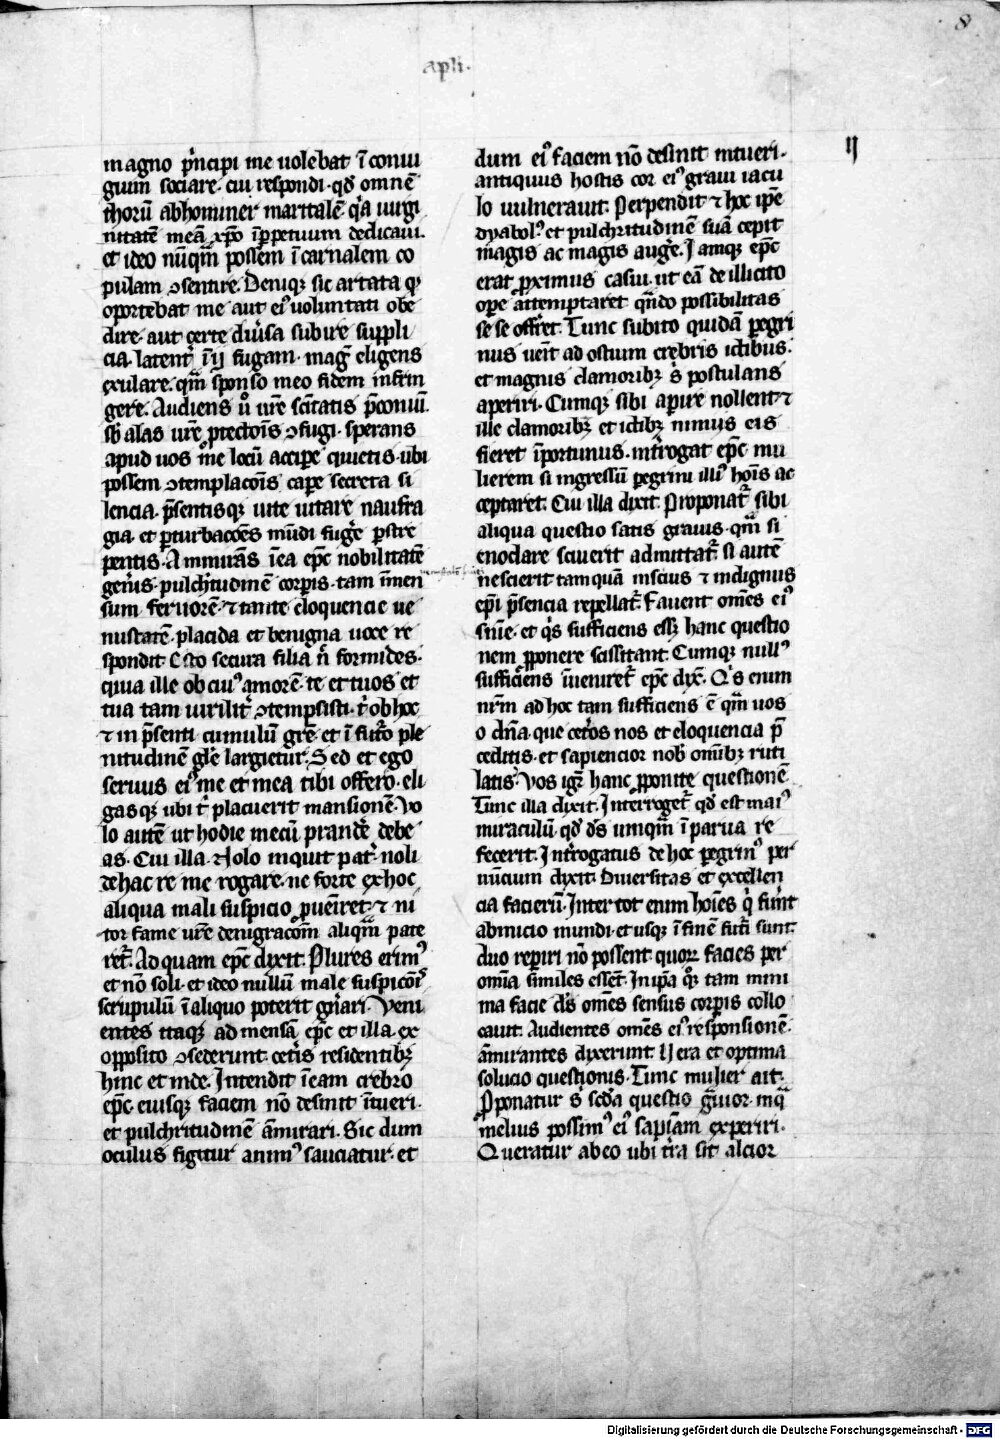 8
apli.
ij
magno p̃ncipi me uolebat ĩ coniu
gium sociare. cui respondi. qđ omnẽ
thorũ abhominer maritalẽ. q̃a uirgi
nitatẽ meã xp̃o ĩp̃petuum dedicaui.
et ideo nũq̃m possem ĩ carnalem co
pulam ꝯsentire. Deniqꝫ sic artata qꝫ
oportebat me aut eiꝰ uoluntati obe
dire. aut certe diũsa subire suppli
cia. latent̃ ĩij fugam. mag̃ eligens
exulare. q̃m sponso meo fidem infrin
gere. Audiens u͛o ur̃e sc̃itatis p̃coniũ.
sb̃ alas ur̃e ꝓtectõis ꝯfugi. sperans
apud uos me locũ accipe quietis. ubi
possem ꝯtemplacõis cape secreta si
lencia. p̃sentisqꝫ uite uitare naufra
gia. et ꝑturbacões mũdi fuge͛ pstre
pentis. Ammirãs ĩ ea ep̃c nobilitatẽ
gen̾is. pulchtudinẽ corꝑis. tam ĩmen
sum feruorẽ. ⁊ tante eloquencie ue
nustatẽ. placida et benigna uoce re
spondit. Esto secura filia ñ formides.
quia ille ob cuiꝰ amorẽ. te et tuos et
tua tam uirilit̃ ꝯtempsisti. t͛ ob hoc
⁊ in p̃senti cumulũ gr̃e. et ĩ fut̾o ple
nitudinẽ gl̃e largietur. Sed et ego
seruus eiꝰ me et mea tibi offero. eli
gasqꝫ ubi t͛ placuerit mansionẽ. Vo
lo autẽ ut hodie mecũ prande͛ debe
as. Cui illa. Nolo inquit pat̃. noli
de hac re me rogare. ne forte ex hoc
aliqua mali suspicio ꝓueiret. ⁊ ni
tor fame ur̃e denigracõm aliq̃m pate
ret̃. Ad quam ep̃c dixit. Plures erimꝰ
et nõ soli. et ideo nullũ male suspicõis
scrupulũ ĩ aliquo poterit gñari. Veni
entes itaqꝫ ad mensã ep̃c et illa. ex
opposito ꝯsederunt. cet̾is residentibꝫ
hinc et inde. Intendit ĩ eam crebro
ep̃c. eiusqꝫ faciem nõ desinit ĩtueri.
et pulchritudinẽ ãmirari. Sic dum
oculus figitur animꝰ sauciatur. et
dum eiꝰ faciem nõ desinit intueri.
antiquus hostis cor eiꝰ graui iacu
lo uulnerauit. Perpendit ⁊ hoc ip̃e
dyabolꝰ. et pulchritudinẽ suã cepit
magis ac magis auge͛. Iamqꝫ ep̃c
erat ꝓximus casui. ut eã de illicito
ope͛ attemptaret. qñdo possibilitas
se se offr̃et. Tunc subito quidã pegri
nus ueñit ad ostium crebris ictibus.
et magnis clamoribꝫ s̾ postulans
aperiri. Cumqꝫ sibi apire nollent ⁊
ille clamoribꝫ et ictibꝫ nimius eis
fieret ĩportunus. int̾rogat ep̃c mu
lierem si ingressũ pegrini illiꝰ hoĩs ac
ceptaret. Cui illa dixit. Proponat̃ sibi
aliqua questio satis grauis. q̃m si
enodare sciuerit admittat̃. si autẽ
nescierit tamquã inscius ⁊ indignus
ep̃i p̃sencia repellat̃. Fauent om̃es eiꝰ
sñie. et q̾s sufficiens esset hanc questio
nem ꝓponere sciscitant. Cumqꝫ nullꝰ
sufficiens ĩueniret̃ ep̃c dix̃. Q̾s enim
nr̃m ad hoc tam sufficiens ẽ q̃m uos
o dña. que cet̾os nos et eloquencia p̃
ceditis. et sapiencior nob̾ om̃ibꝫ ruti
latis. Vos igr̃ hanc ꝓponite questionẽ.
Tunc illa dixit. Interroget̃ qđ est maiꝰ
miraculũ. qđ d̃s umq̃m ĩ parua re
fecerit. Int̾rogatus de hoc pegrinꝰ per
nũcium dixit. Diuersitas et excellen
cia facierũ. Inter tot enim hoĩes q̾ fũnt
ab inicio mundi. et usqꝫ ĩ finẽ fut̾i sunt
duo repiri nõ possent quoꝝ facies per
om̃ia similes essẽt. In ip̃a q̃ꝫ tam mini
ma facie d̃s om̃es sensus corꝑis collo
cauit. Audientes om̃es eiꝰ responsionẽ.
ãmirantes dixerunt. Vera et optima
solucio questionis. Tunc mulier ait.
Pꝓponatur s̾ sc̃da questio g̃uior. in q̃
melius possimꝰ eiꝰ sapiam experiri.
Queratur ab eo ubi tr̃a sit alcior